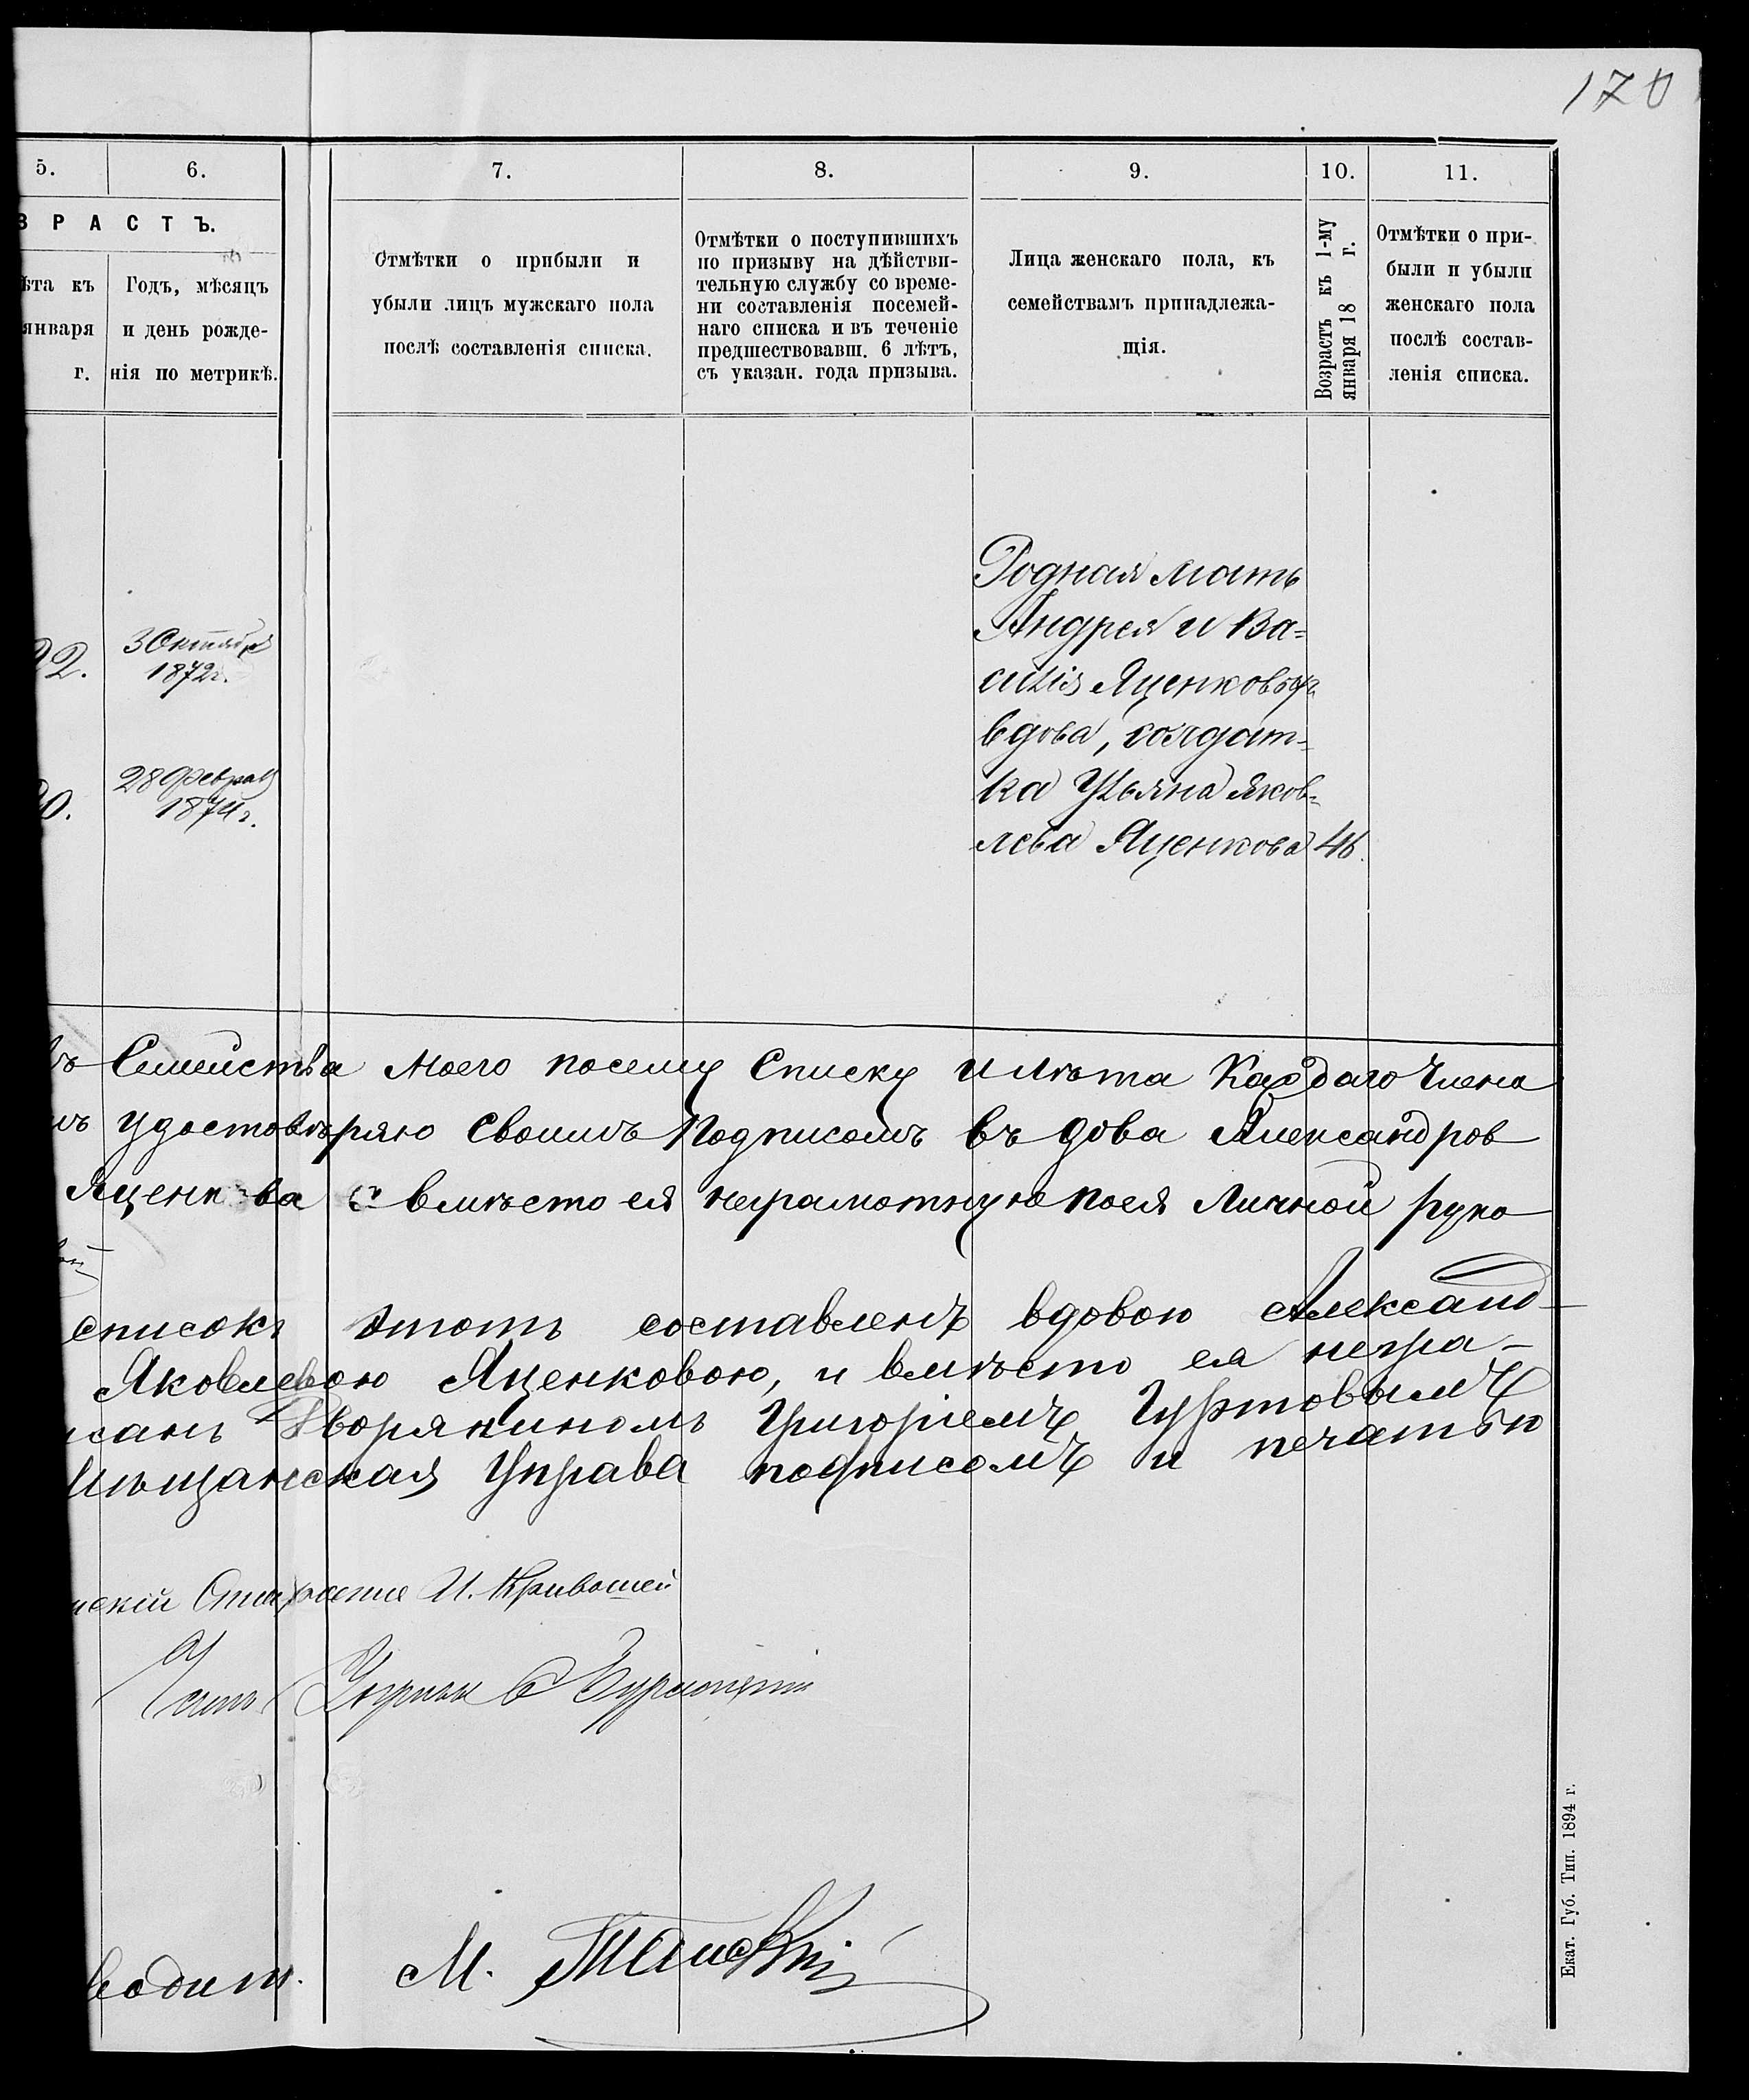 170
5. 6. 7. 8. 9. 10. 11.
ЗРАСТЪ.
ѣта къ
января
г.
Годъ, мѣсяцъ
и день рожде-
нія по метрикѣ.
Отмѣтки о прибыли и
убыли лицъ мужскаго пола
послѣ составленія списка.
Отмѣтки о поступившихъ
по призыву на дѣйстви-
тельную службу со време-
ни составленія посемей-
наго списка и въ теченіе
предшествовавш. 6 лѣтъ,
съ указан. года призыва.
Лица женскаго пола, къ
семействамъ принадлежа-
щія.
Возрастъ къ 1-му
января 18 г.
Отмѣтки о при-
были и убыли
женскаго пола
послѣ состав-
ленія списка.
22.
3 Октября
1872г.
20.
28 Февраля
1874г.
Родная мать
Андрея и Ва=
силія Яценковыхъ
вдова, солдат-
ка Ульяна Яков=
лева Яценкова 46.
Семейства моего посему Списку и лѣта Каждаго Члена
удостовѣряю своимъ Подписомъ въ дова Александров
Яценкова вмѣсто ея неграмотную поея Личной руко
списокъ этотъ составленъ вдовою Александ-
Яковлевою Яценковою, и вмѣсто ея негра-
исанъ Дворяниномъ Григоріемъ Гуртовымъ
Мѣщанская Управа подписомъ и печатью
нскій Староста И. Кривошей
Член Управы
водит. М.
Екат. Губ. Тип. 1894 г.